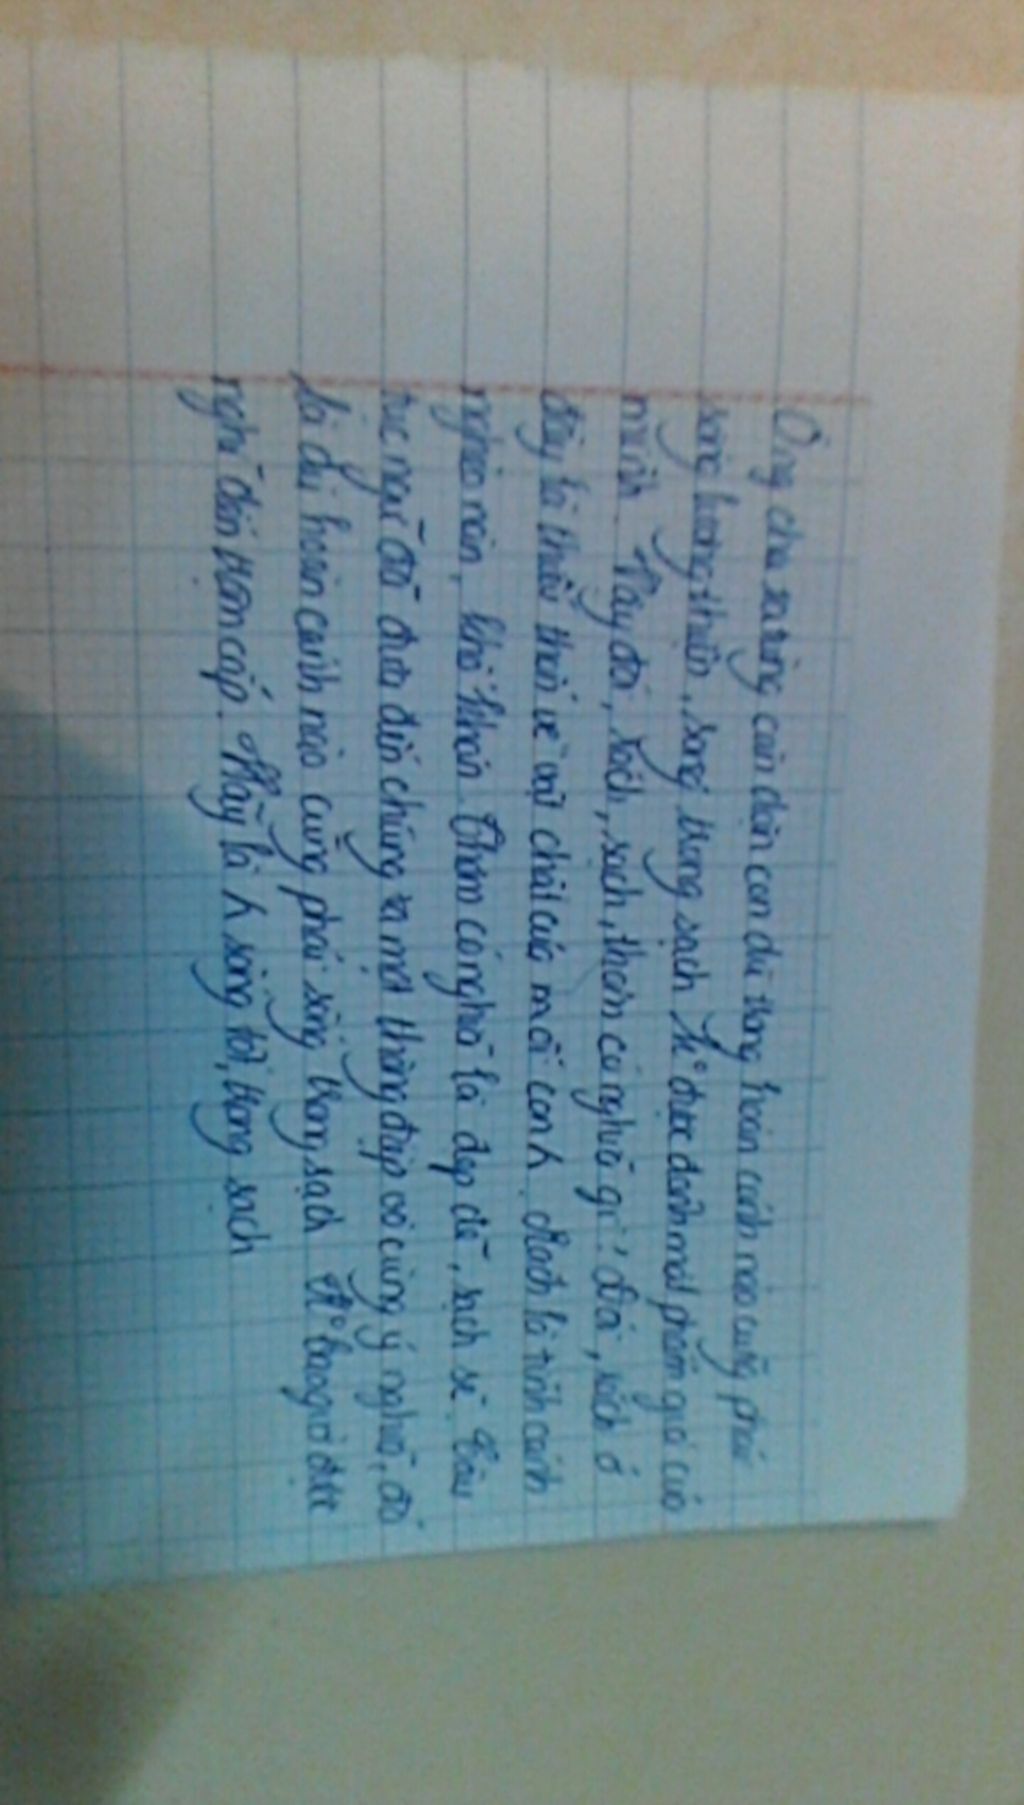 Ông cha ta từng căn dặn con dù trong hoàn cảnh nào cũng phải
sống lương thiện, sống trong sạch k° được đánh mất phẩm giá của
mình. Vậy đói, rách, sạch, thơm có nghĩa gì? Đói, rách ở
đây là thiếu thốn về vật chất của mỗi con λ. Rách là tình cảnh
nghèo nàn, khó khăn. Thơm có nghĩa là đẹp đẽ, sạch sẽ. Câu
tục ngữ đã đưa đến chúng ta một thông điệp vô cùng ý nghĩa, đó
là dù hoàn cảnh nào cũng phải sống trong sạch k° bao giờ được
nghĩ đến trộm cắp. Hãy là λ sống tốt, trong sạch